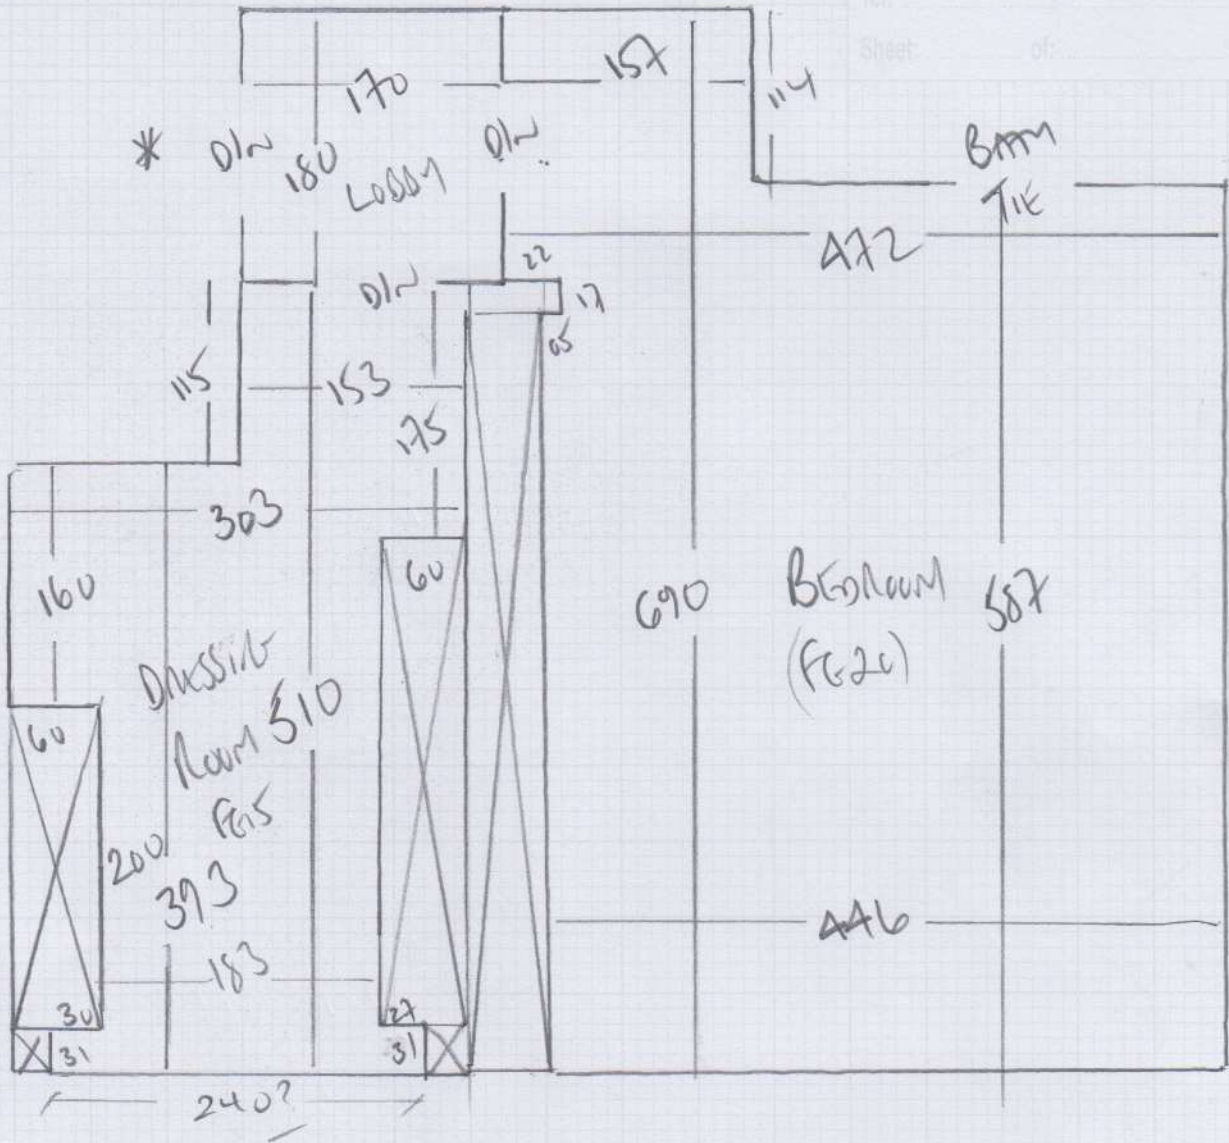 Sheet: of:
170
157
114
* D/N
180
LOBBY
D/N
BATH
TIE
472
22
17
05
D/N
115
153
175
303
160
60
60
690
BEDROOM
(FG20)
587
DRESSING
ROOM 510
FG15
200
393
183
446
30
31
27
31
240?